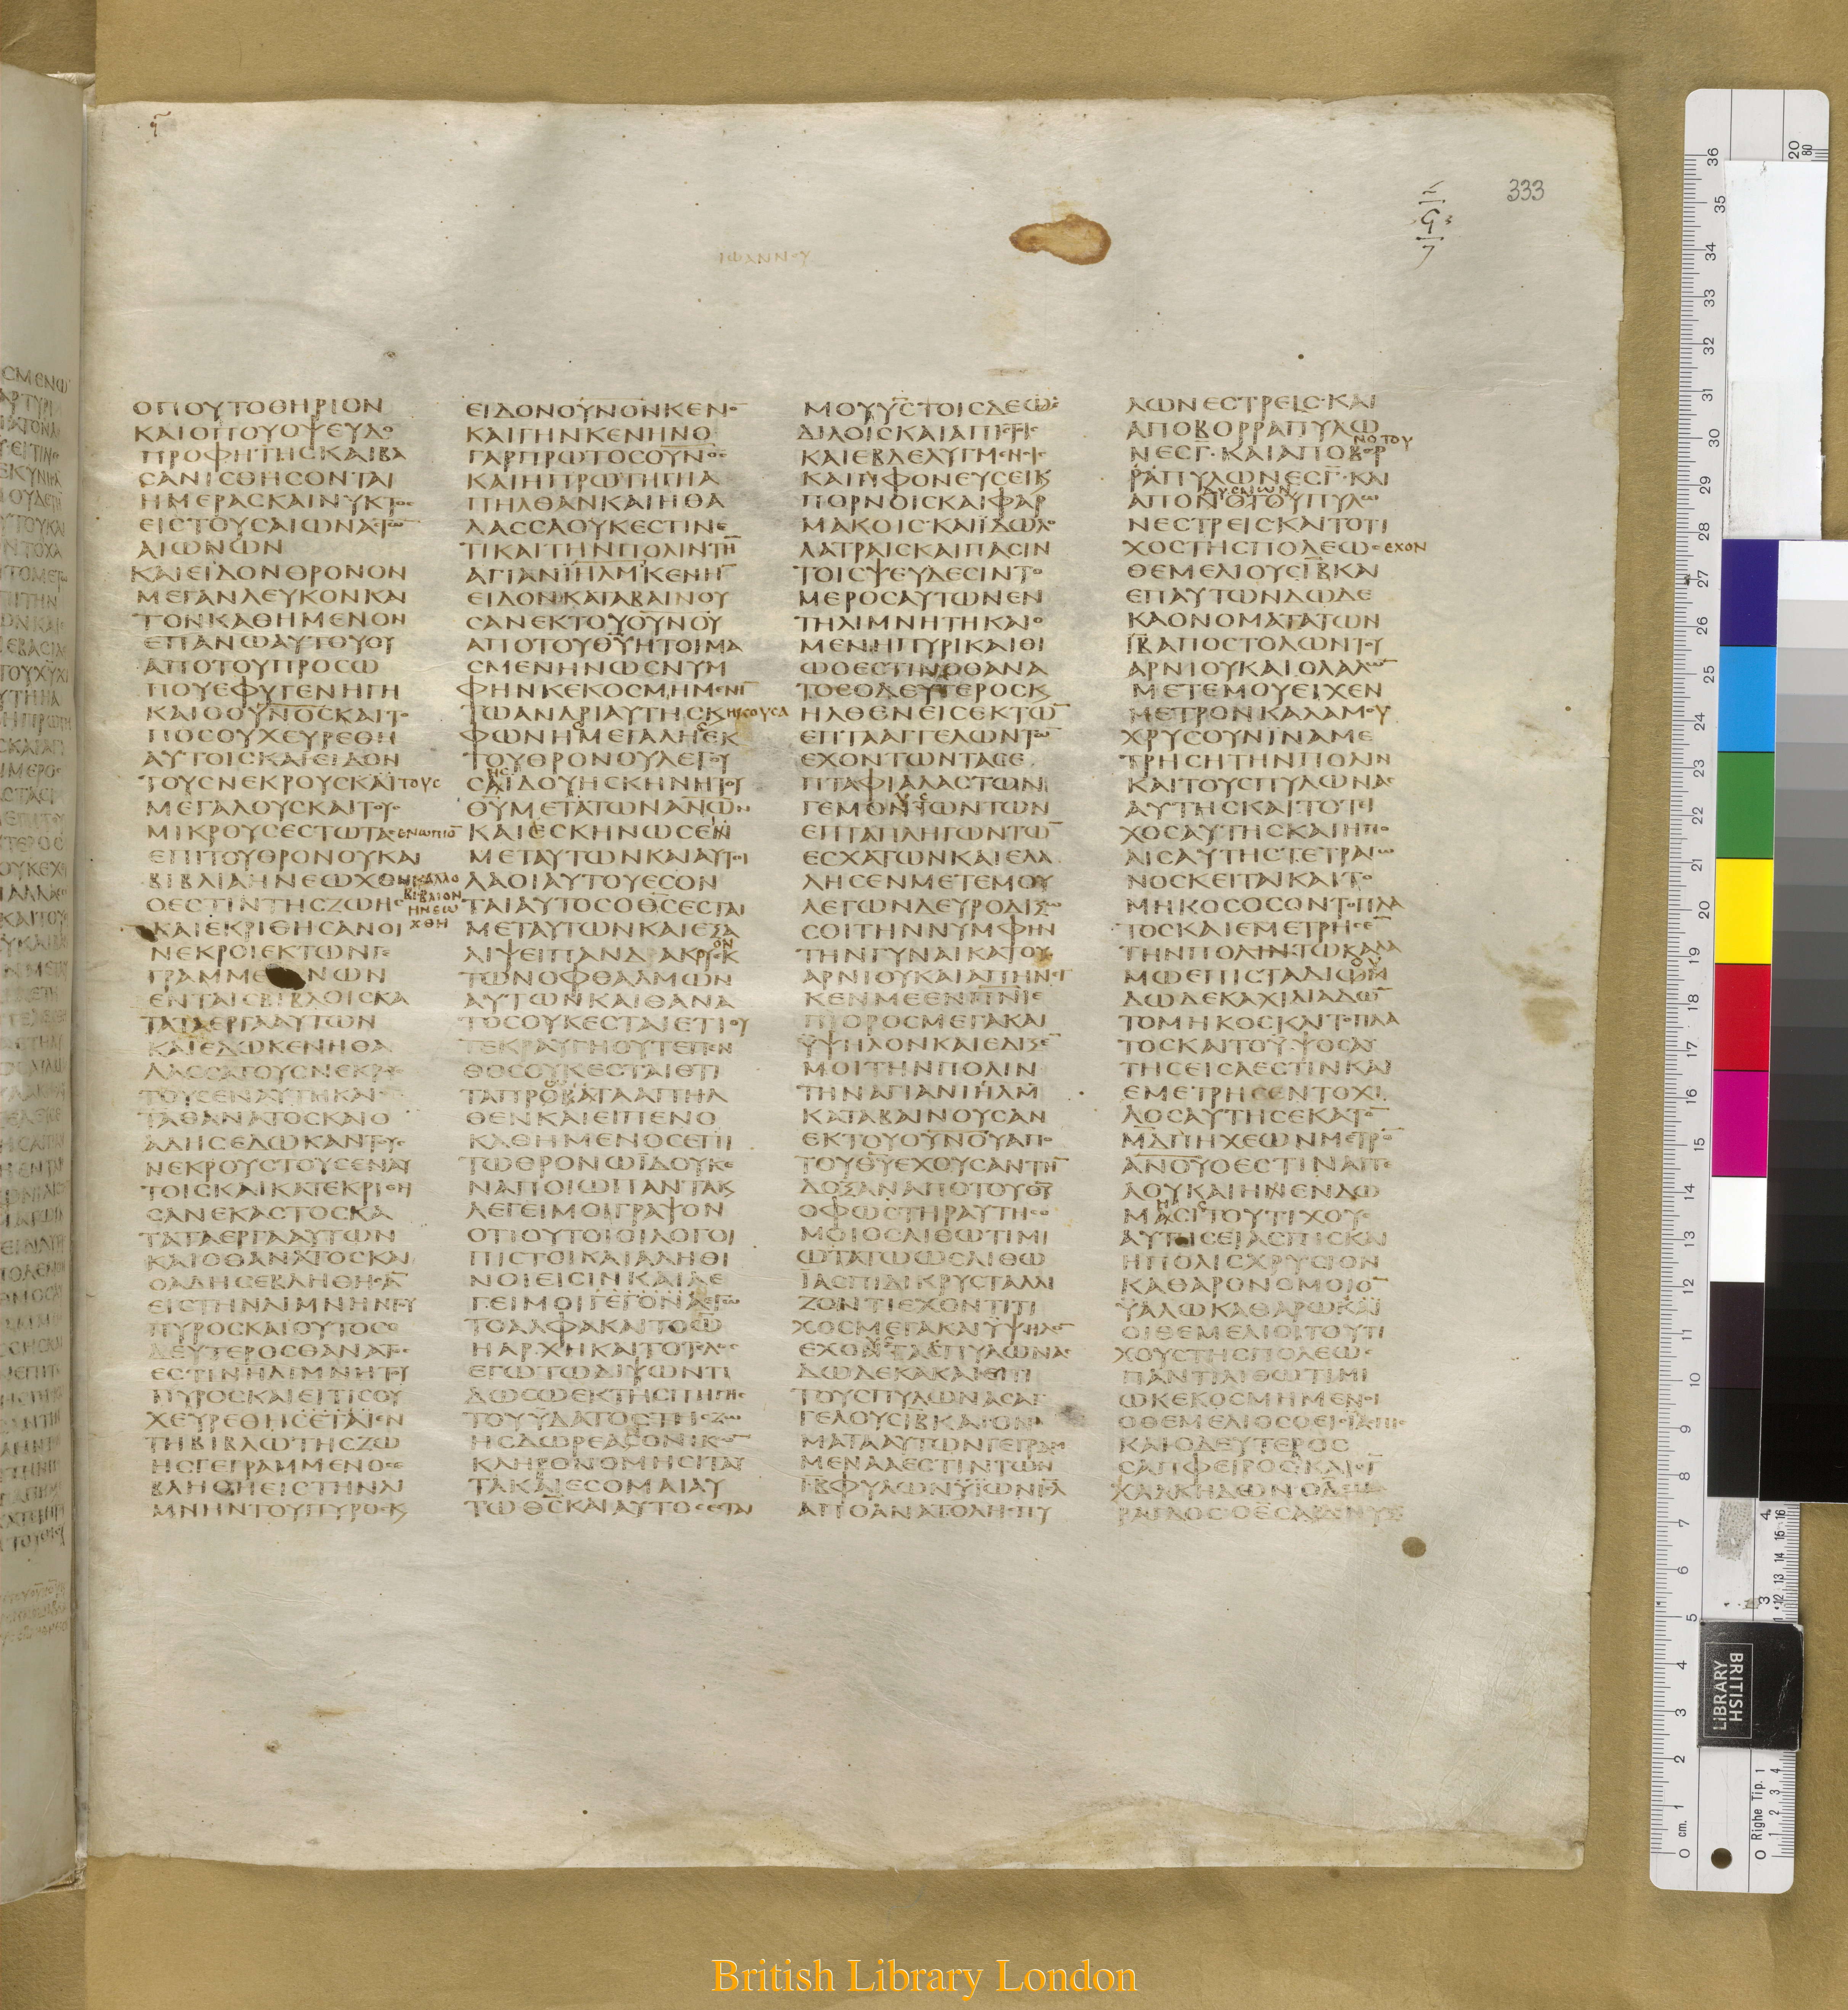 333
ΙΩΑΝΝΟΥ
ΟΠΟΥΤΟΘΗΡΙΟΝ
ΚΑΙΟΠΟΥΟΨΕΥΔΟ
ΠΡΟΦΗΤΗϹΚΑΙΒΑ
ϹΑΝΙϹΘΗϹΟΝΤΑΙ
ΗΜΕΡΑϹΚΑΙΝΥΚΤΟϹ
ΕΙϹΤΟΥϹΑΙΩΝΑϹΤΩ̅
ΑΙΩΝΩΝ
ΚΑΙΕΙΔΟΝΘΡΟΝΟΝ
ΜΕΓΑΝΛΕΥΚΟΝΚΑΙ
ΤΟΝΚΑΘΗΜΕΝΟΝ
ΕΠΑΝΩΑΥΤΟΥΟΥ
ΑΠΟΤΟΥΠΡΟϹΩ
ΠΟΥΕΦΥΓΕΝΗΓΗ
ΚΑΙΟΟΥΝΟϹΚΑΙΤΟ
ΠΟϹΟΥΧΕΥΡΕΘΗ
ΑΥΤΟΙϹΚΑΙΕΙΔΟΝ
ΤΟΥϹΝΕΚΡΟΥϹΚΑΙΤΟΥϹ
ΜΕΓΑΛΟΥϹΚΑΙΤΟΥϹ
ΜΙΚΡΟΥϹΕϹΤΩΤΑϹΕΝΩΠΙΟ̅
ΕΠΙΤΟΥΘΡΟΝΟΥΚΑΙ
ΒΙΒΛΙΑΗΝΕΩΧΘΗΚΑΛΛΟ
ΒΙΒΛΙΟΝ
ΗΝΕΩ
ΧΘΗ
ΟΕϹΤΙΝΤΗϹΖΩΗϹ
ΚΑΙΕΚΡΙΘΗϹΑΝΟΙ
ΝΕΚΡΟΙΕΚΤΩΝΓΕ
ΓΡΑΜΜΕΝΩΝ
ΕΝΤΑΙϹΒΙΒΛΟΙϹΚΑ
ΤΑΤΑΕΡΓΑΑΥΤΩΝ
ΚΑΙΕΔΩΚΕΝΗΘΑ
ΛΑϹϹΑΤΟΥϹΝΕΚΡΟΥϹ
ΤΟΥϹΕΝΑΥΤΗΚΑΙ
ΤΑΘΑΝΑΤΟϹΚΑΙΟ
ΑΔΗϹΕΔΩΚΑΝΤΟΥϹ
ΝΕΚΡΟΥϹΤΟΥϹΕΝΑΥ
ΤΟΙϹΚΑΙΚΑΤΕΚΡΙΘΗ
ϹΑΝΕΚΑϹΤΟϹΚΑ
ΤΑΤΑΕΡΓΑΑΥΤΩΝ
ΚΑΙΟΘΑΝΑΤΟϹΚΑΙ
ΟΑΔΗϹΕΒΛΗΘΗϹΑ̅
ΕΙϹΤΗΝΛΙΜΝΗΝΤΟΥ
ΠΥΡΟϹΚΑΙΟΥΤΟϹΟ
ΔΕΥΤΕΡΟϹΘΑΝΑΤΟϹ
ΕϹΤΙΝΗΛΙΜΝΗΤΟΥ
ΠΥΡΟϹΚΑΙΕΙΤΙϹΟΥ
ΧΕΥΡΕΘΗϹΕΤΑΙΕΝ
ΤΗΒΙΒΛΩΤΗϹΖΩ
ΗϹΓΕΓΡΑΜΜΕΝΟϹΕ
ΒΛΗΘΗΕΙϹΤΗΝΛΙ
ΜΝΗΝΤΟΥΠΥΡΟϹΚ
ΕΙΔΟΝΟΥΝΟΝΚΕΝΟ̅
ΚΑΙΓΗΝΚΕΝΗΝΟ
ΓΑΡΠΡΩΤΟϹΟΥΝΟϹ
ΚΑΙΗΠΡΩΤΗΓΗΑ
ΠΗΛΘΑΝΚΑΙΗΘΑ
ΛΑϹϹΑΟΥΚΕϹΤΙΝΕ
ΤΙΚΑΙΤΗΝΠΟΛΙΝΤΗ̅
ΑΓΙΑΝΙΗΛΜΚΕΝΗ̅
ΕΙΔΟΝΚΑΤΑΒΑΙΝΟΥ
ϹΑΝΕΚΤΟΥΟΥΝΟΥ
ΑΠΟΤΟΥΘΥΗΤΟΙΜΑ
ϹΜΕΝΗΝΩϹΝΥΜ
ΦΗΝΚΕΚΟϹΜΗΜΕΝΗ̅
ΤΩΑΝΔΡΙΑΥΤΗϹΚΗΚΟΥϹΑ
ΦΩΝΗϹΜΕΓΑΛΗϹΕΚ
ΤΟΥΘΡΟΝΟΥΛΕΓΟΥ
ϹΑΙΔΟΥΗϹΚΗΝΗΤΟΥ
ΘΥΜΕΤΑΤΩΝΑΝΩΝ
ΚΑΙΕϹΚΗΝΩϹΕΝ
ΜΕΤΑΥΤΩΝΚΑΙΑΥΤΟΙ
ΛΑΟΙΑΥΤΟΥΕϹΟΝ
ΤΑΙΑΥΤΟϹΟΘϹΕϹΤΑΙ
ΜΕΤΑΥΤΩΝΚΑΙΕΞΑ
ΛΙΨΕΙΠΑΝΔΑΚΡΥΟΝΕΚ
ΤΩΝΟΦΘΑΛΜΩΝ
ΑΥΤΩΝΚΑΙΘΑΝΑ
ΤΟϹΟΥΚΕϹΤΑΙΕΤΙΟΥ
ΤΕΚΡΑΥΓΗΟΥΤΕΠΕΝ
ΘΟϹΟΥΚΕϹΤΑΙΕΤΙ
ΤΑΠΡΟΒΑΤΑΑΠΗΛ
ΘΕΝΚΑΙΕΙΠΕΝΟ
ΚΑΘΗΜΕΝΟϹΕΠΙ
ΤΩΘΡΟΝΩΙΔΟΥΚΕ
ΝΑΠΟΙΩΠΑΝΤΑΚ
ΛΕΓΕΙΜΟΙΓΡΑΨΟΝ
ΟΤΙΟΥΤΟΙΟΙΛΟΓΟΙ
ΠΙϹΤΟΙΚΑΙΑΛΗΘΙ
ΝΟΙΕΙϹΙΝΚΑΙΛΕ
ΓΕΙΜΟΙΓΕΓΟΝΑΕΓΩ
ΤΟΑΛΦΑΚΑΙΤΟΩ
ΗΑΡΧΗΚΑΙΤΟΤΕΛΟϹ
ΕΓΩΤΩΔΙΨΩΝΤΙ
ΔΩϹΩΕΚΤΗϹΠΗΓΗϹ
ΤΟΥΥΔΑΤΟϹΤΗϹΖΩ
ΗϹΔΩΡΕΑΝΟΝΙΚΩ̅
ΚΛΗΡΟΝΟΜΗϹΙΤΑΥ
ΤΑΚΑΙΕϹΟΜΑΙΑΥ
ΤΩΘϹΚΑΙΑΥΤΟϹΕϹΤΑΙ
ΜΟΥΥϹΤΟΙϹΔΕΩϹ
ΔΙΛΟΙϹΚΑΙΑΠΙϹΤΟΙϹ
ΚΑΙΕΒΔΕΛΥΓΜΕΝΟΙϹ
ΚΑΙΦΟΝΕΥϹΕΙΚ
ΠΟΡΝΟΙϹΚΑΙΦΑΡ
ΜΑΚΟΙϹΚΑΙΙΔΩΛΟ
ΛΑΤΡΑΙϹΚΑΙΠΑϹΙΝ
ΤΟΙϹΨΕΥΔΕϹΙΝΤΟ
ΜΕΡΟϹΑΥΤΩΝΕΝ
ΤΗΛΙΜΝΗΤΗΚΑΙΟ
ΜΕΝΗΠΥΡΙΚΑΙΘΙ
ΩΟΕϹΤΙΝΟΘΑΝΑ
ΤΟϹΟΔΕΥΤΕΡΟϹΚ
ΗΛΘΕΝΕΙϹΕΚΤΩ̅
ΕΠΤΑΑΓΓΕΛΩΝΤΩ̅
ΕΧΟΝΤΩΝΤΑϹΕ
ΠΤΑΦΙΑΛΑϹΤΩΝ
ΓΕΜΟΝΤΩΝΤΩΝ
ΕΠΤΑΠΛΗΓΩΝΤΩ̅
ΕϹΧΑΤΩΝΚΑΙΕΛΑ
ΛΗϹΕΝΜΕΤΕΜΟΥ
ΛΕΓΩΝΔΕΥΡΟΔΙΞΩ
ϹΟΙΤΗΝΝΥΜΦΗΝ
ΤΗΝΓΥΝΑΙΚΑΤΟΥ
ΑΡΝΙΟΥΚΑΙΑΠΗΝΕΓ
ΚΕΝΜΕΕΝΠΝΙΕ
ΠΙΟΡΟϹΜΕΓΑΚΑΙ
ΥΨΗΛΟΝΚΑΙΕΔΙΞΕ̅
ΜΟΙΤΗΝΠΟΛΙΝ
ΤΗΝΑΓΙΑΝΙΗΛΜ
ΚΑΤΑΒΑΙΝΟΥϹΑΝ
ΕΚΤΟΥΟΥΝΟΥΑΠΟ
ΤΟΥΘΥΕΧΟΥϹΑΝΤΗ̅
ΔΟΞΑΝΑΠΟΤΟΥΘΥ
ΟΦΩϹΤΗΡΑΥΤΗϹΟ
ΜΟΙΟϹΛΙΘΩΤΙΜΙ
ΩΤΑΤΩΩϹΛΙΘΩ
ΙΑϹΠΙΔΙΚΡΥϹΤΑΛΛΙ
ΖΟΝΤΙΕΧΟΝΤΙΤΙ
ΧΟϹΜΕΓΑΚΑΙΥΨΗΛΟ̅
ΔΩΔΕΚΑΚΑΙΕΠΙ
ΤΟΥϹΠΥΛΩΝΑϹΑΓ
ΓΕΛΟΥϹΙΒΚΑΙΟΝΟ
ΜΑΤΑΑΥΤΩΝΓΕΓΡΑΜ
ΜΕΝΑΑΕϹΤΙΝΤΩΝ
ΙΒΦΥΛΩΝΥΙΩΝΙΗΛ
ΑΠΟΑΝΑΤΟΛΗϹΠΥ
ΛΩΝΕϹΤΡΕΙϹ·ΚΑΙ
ΑΠΟΒΟΡΡΑΠΥΛΩ
ΝΟΤΟΥ
ΝΕϹΓ·ΚΑΙΑΠΟΒΟΡ
ΡΑΠΥΛΩΝΕϹΓ·ΚΑΙ
ΔΥϹΜΩΝ
ΑΠΟΝΟΤΟΥΠΥΛΩ
ΝΕϹΤΡΕΙϹΚΑΙΤΟΤΙ
ΧΟϹΤΗϹΠΟΛΕΩϹΕΧΟΝ
ΘΕΜΕΛΙΟΥϹΙΒΚΑΙ
ΕΠΑΥΤΩΝΔΩΔΕ
ΚΑΟΝΟΜΑΤΑΤΩΝ
ΙΒΑΠΟϹΤΟΛΩΝΤΟΥ
ΑΡΝΙΟΥΚΑΙΟΛΑΛΩ̅
ΜΕΤΕΜΟΥΕΙΧΕΝ
ΜΕΤΡΟΝΚΑΛΑΜΟΥ
ΧΡΥϹΟΥΝΙΝΑΜΕ
ΤΡΗϹΗΤΗΝΠΟΛΙΝ
ΚΑΙΤΟΥϹΠΥΛΩΝΑϹ
ΑΥΤΗϹΚΑΙΤΟΤΙ
ΧΟϹΑΥΤΗϹΚΑΙΗΠΟ
ΛΙϹΑΥΤΗϹΤΕΤΡΑΓΩ
ΝΟϹΚΕΙΤΑΙΚΑΙΤΟ
ΜΗΚΟϹΟϹΟΝΤΟΠΛΑ
ΤΟϹΚΑΙΕΜΕΤΡΗϹΕ̅
ΤΗΝΠΟΛΙΝΤΩΚΑΛΑ
ΜΩΕΠΙϹΤΑΔΙΩΝ
ΔΩΔΕΚΑΧΙΛΙΑΔΩ̅
ΤΟΜΗΚΟϹΚΑΙΤΟΠΛΑ
ΤΟϹΚΑΙΤΟΥΨΟϹΑΥ
ΤΗϹΕΙϹΑΕϹΤΙΝΚΑΙ
ΕΜΕΤΡΗϹΕΝΤΟΧΙ
ΛΟϹΑΥΤΗϹΕΚΑΤΟ̅
ΜΔΠΗΧΕΩΝΜΕΤΡΟ̅
ΑΝΟΥΟΕϹΤΙΝΑΓΓΕ
ΛΟΥΚΑΙΗΝΕΝΔΩ
ΜΑϹΙΤΟΥΤΙΧΟΥϹ
ΑΥΤΗϹΕΙΑϹΠΙϹΚΑΙ
ΗΠΟΛΙϹΧΡΥϹΙΟΝ
ΚΑΘΑΡΟΝΟΜΟΙΟ̅
ΥΑΛΩΚΑΘΑΡΩΚΑΙ
ΟΙΘΕΜΕΛΙΟΙΤΟΥΤΙ
ΧΟΥϹΤΗϹΠΟΛΕΩϹ
ΠΑΝΤΙΛΙΘΩΤΙΜΙ
ΩΚΕΚΟϹΜΗΜΕΝΟΙ
ΟΘΕΜΕΛΙΟϹΟΕΙϹΙΑϹΠΙϹ
ΚΑΙΟΔΕΥΤΕΡΟϹ
ϹΑΠΦΕΙΡΟϹΚΑΙΟΓ̅
ΧΑΛΚΗΔΩΝ